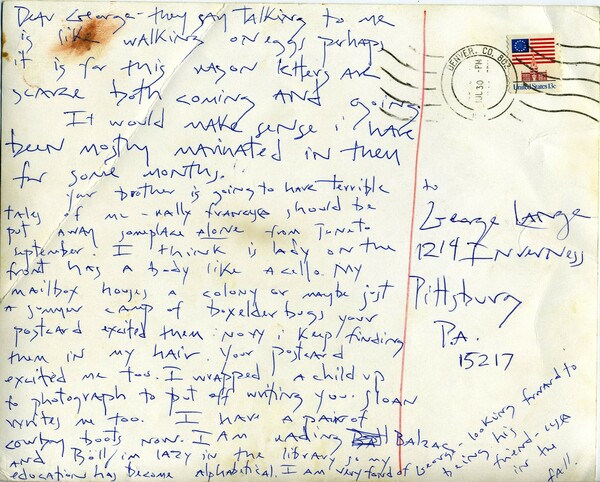 Dear George - they say talking to me
is like walking on eggs perhaps
it is for this reason letters are
scarce both coming and going
It would make sense i have
been mostly marinated in them
for some months.
Your brother is going to have terrible
tales of me - really francesca should be
put away someplace alone from June to
September. I think is lady on the
front has a body like a cello. My
mailbox houses a colony or maybe just
a summer camp of boxelder bugs your
postcard excited them. Now i keep finding
them in my hair. Your postcard
excited me too. I wrapped a child up
to photograph to put off writing you. Sloan
writes me too. I have a pair of
cowboy boots now. I am reading Balzac
and Böll im lazy in the library so my
education has become alphabetical. I am very fond of
George - looking forward to
being his
friend -
in the
fall.
DENVER, CO. 802
PM
JUL 30
United States 13c
to
George Lange
1214 Inverness
Pittsburg
P.A.
15217